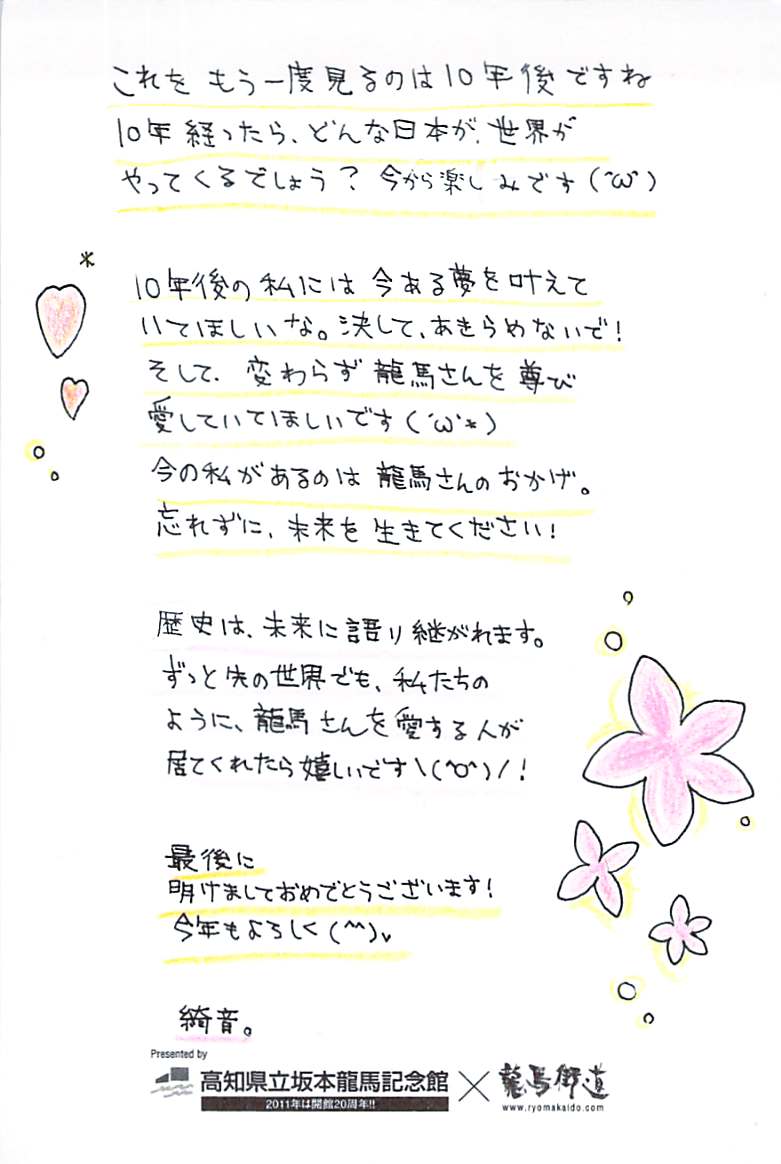 これを もう一度見るのは10年後ですね
10年経ったら、どんな日本が、世界が
やってくるでしょう？ 今から楽しみです(´ω`)
10年後の私には 今ある夢を叶えて
いてほしいな。決して、あきらめないで！
そして、変わらず 龍馬さんを尊び
愛していてほしいです(´ω`*)
今の私があるのは 龍馬さんのおかげ。
忘れずに、未来を生きてください！
歴史は、未来に語り継がれます。
ずっと先の世界でも、私たちの
ように、龍馬さんを愛する人が
居てくれたら嬉しいです\(^O^)/！
最後に
明けましておめでとうございます！
今年もよろしく(^^)v
綺音。
Presented by
高知県立坂本龍馬記念館 × 龍馬街道
2011年は開館20周年!!
www.ryomakaido.com